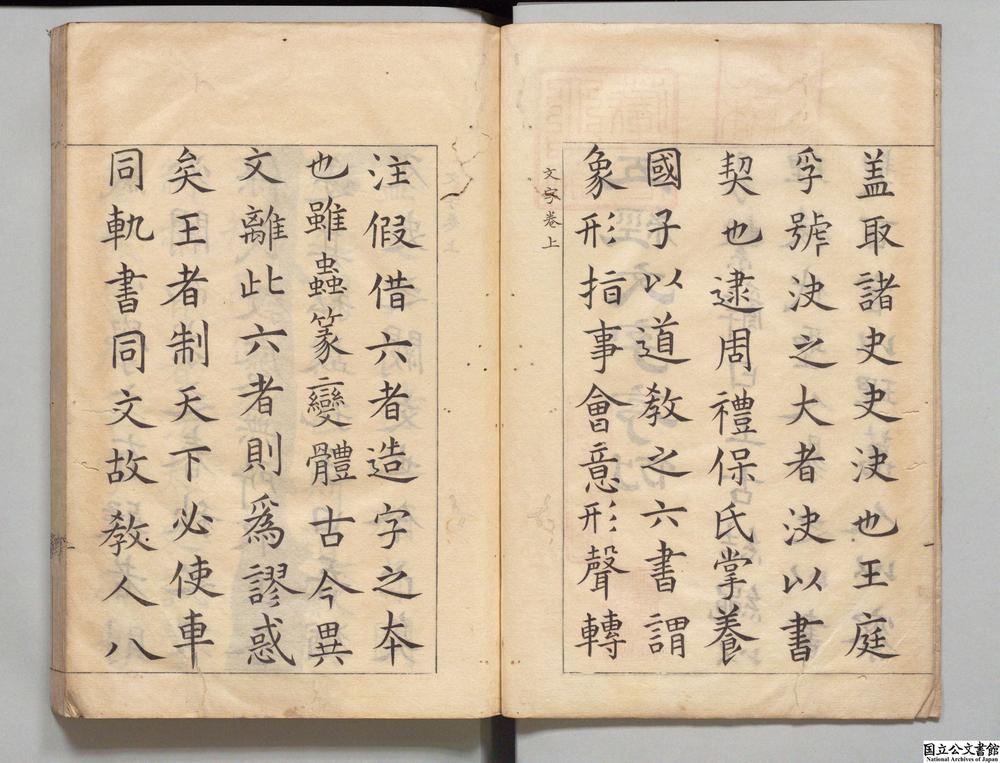 盖取諸史史決也王庭
孚號決之大者決以書
契也逮周禮保氏掌養
國子以道教之六書謂
象形指事會意形聲轉
文字卷上
注假借六者造字之本
也雖蟲篆變體古今異
文離此六者則爲謬惑
矣王者制天下必使車
同軌書同文故教人八
国立公文書館
National Archives of Japan